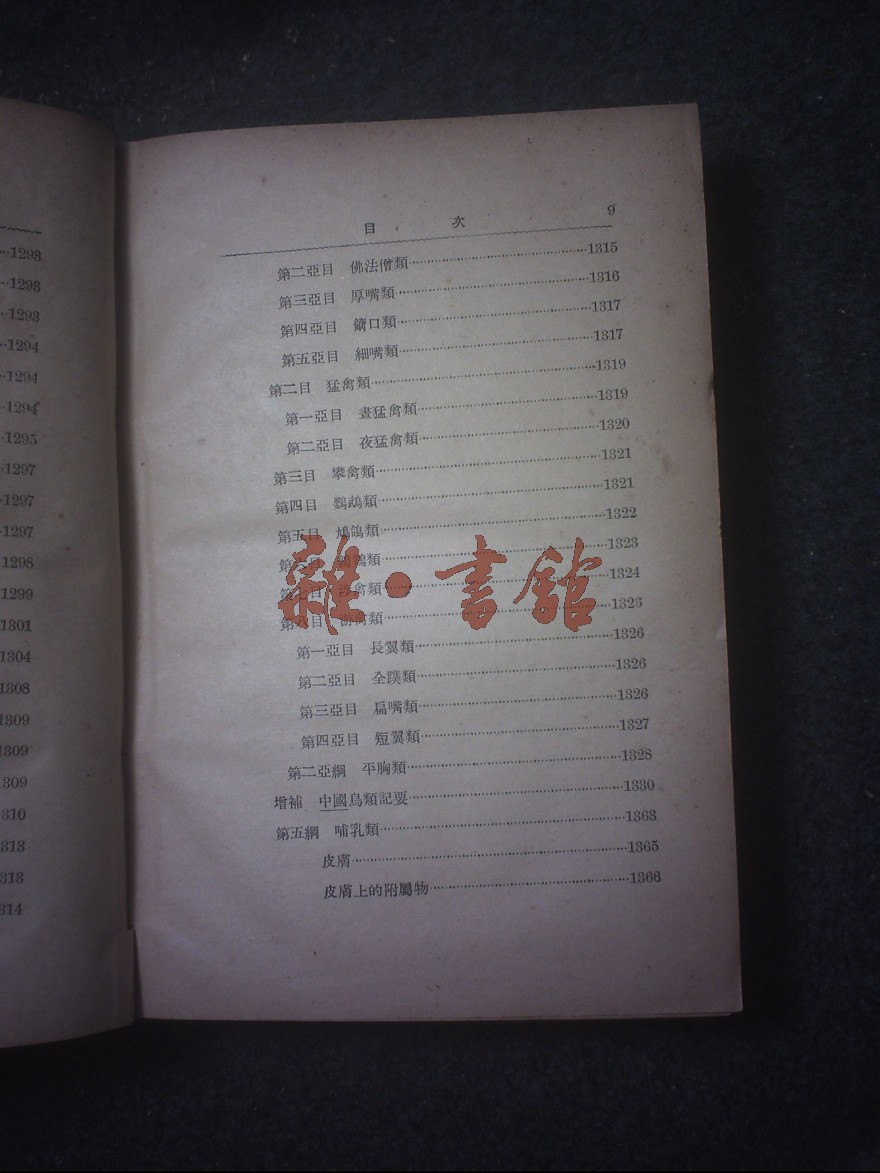 1293
1293
1293
1294
1294
1294
1295
1297
1297
1297
1298
1299
1301
1304
1308
1309
1309
309
310
313
313
314
目 次 9
第二亞目 佛法僧類 1315
第三亞目 厚嘴類 1316
第四亞目 鏑口類 1317
第五亞目 細嘴類 1317
第二目 猛禽類 1319
第一亞目 晝猛禽類 1319
第二亞目 夜猛禽類 1320
第三目 攀禽類 1321
第四目 鸚鵡類 1321
第五目 鳩鴿類 1322
第六目 類 1323
第七目 涉禽類 1324
第八目 游禽類 1325
第一亞目 長翼類 1326
第二亞目 全蹼類 1326
第三亞目 扁嘴類 1326
第四亞目 短翼類 1327
第二亞綱 平胸類 1328
增補 中國鳥類記要 1330
第五綱 哺乳類 1363
皮膚 1365
皮膚上的附屬物 1366
雜·書館